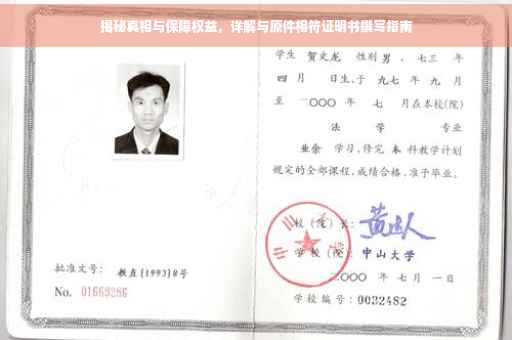 揭秘真相与保障权益，详解与原件相符证明书撰写指南
学生 贺文龙 性别 男，七三 年
四 月 日生，于 九七 年 九 月
至 二〇〇〇 年 七 月在本校(院)
法 学 专业
业余 学习，修完 本 科教学计划
规定的全部课程，成绩合格，准予毕业。
校 (院) 长：
学 校 (院)： 中山大学
二〇〇〇 年 七 月 一 日
批准文号： 教直[1993]8号
No. 01669286
学校编号：0032482